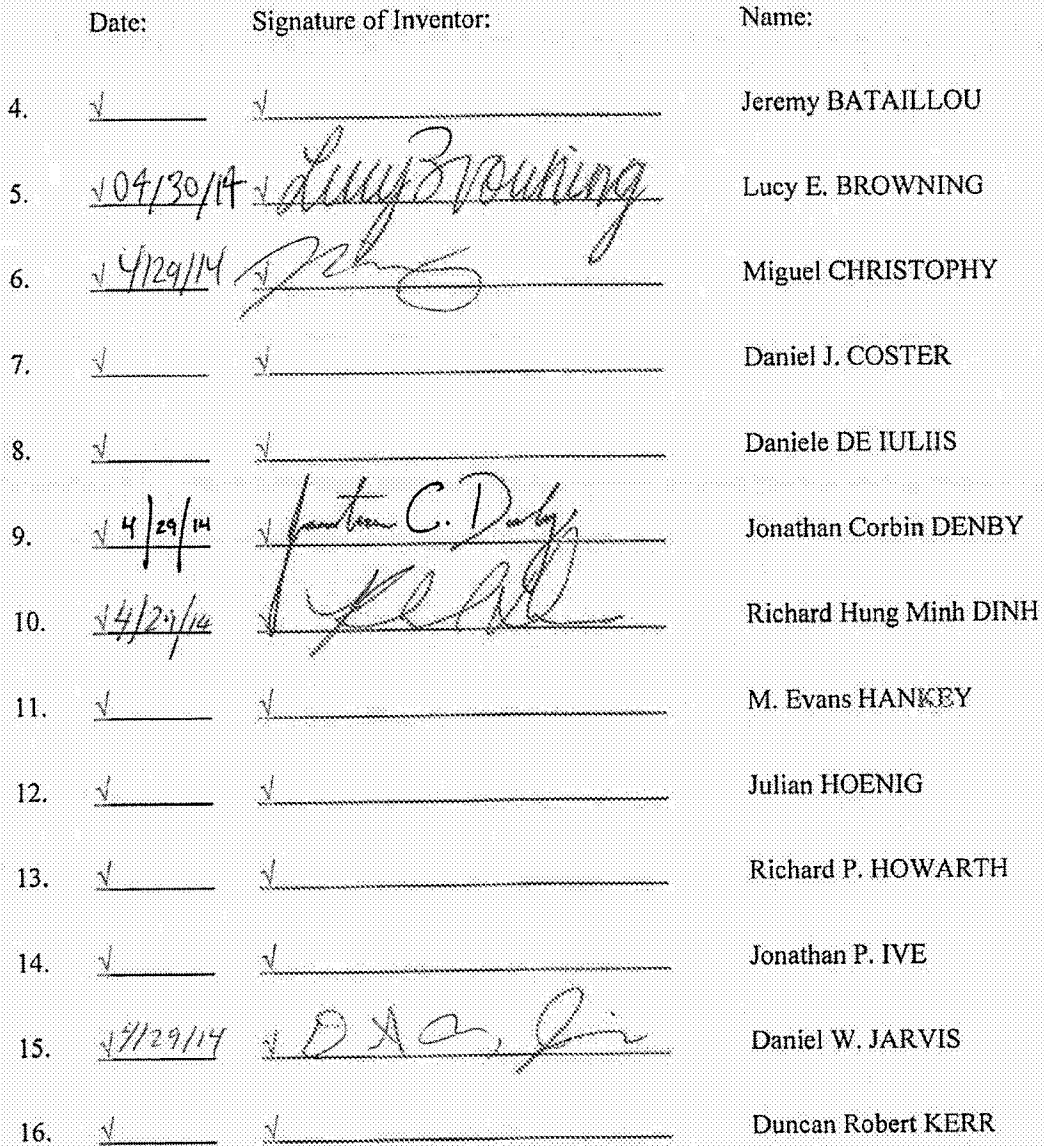 Date: Signature of Inventor: Name:
4. √ √ Jeremy BATAILLOU
5. √ 04/30/14 √ Lucy Browning Lucy E. BROWNING
6. √ 4/29/14 √ Miguel CHRISTOPHY
7. √ √ Daniel J. COSTER
8. √ √ Daniele DE IULIIS
9. √ 4/29/14 √ Jonathan C. Denby Jonathan Corbin DENBY
10. √ 4/29/14 √ Richard Hung Minh DINH
11. √ √ M. Evans HANKEY
12. √ √ Julian HOENIG
13. √ √ Richard P. HOWARTH
14. √ √ Jonathan P. IVE
15. √ 4/29/14 √ Daniel W. JARVIS
16. √ √ Duncan Robert KERR